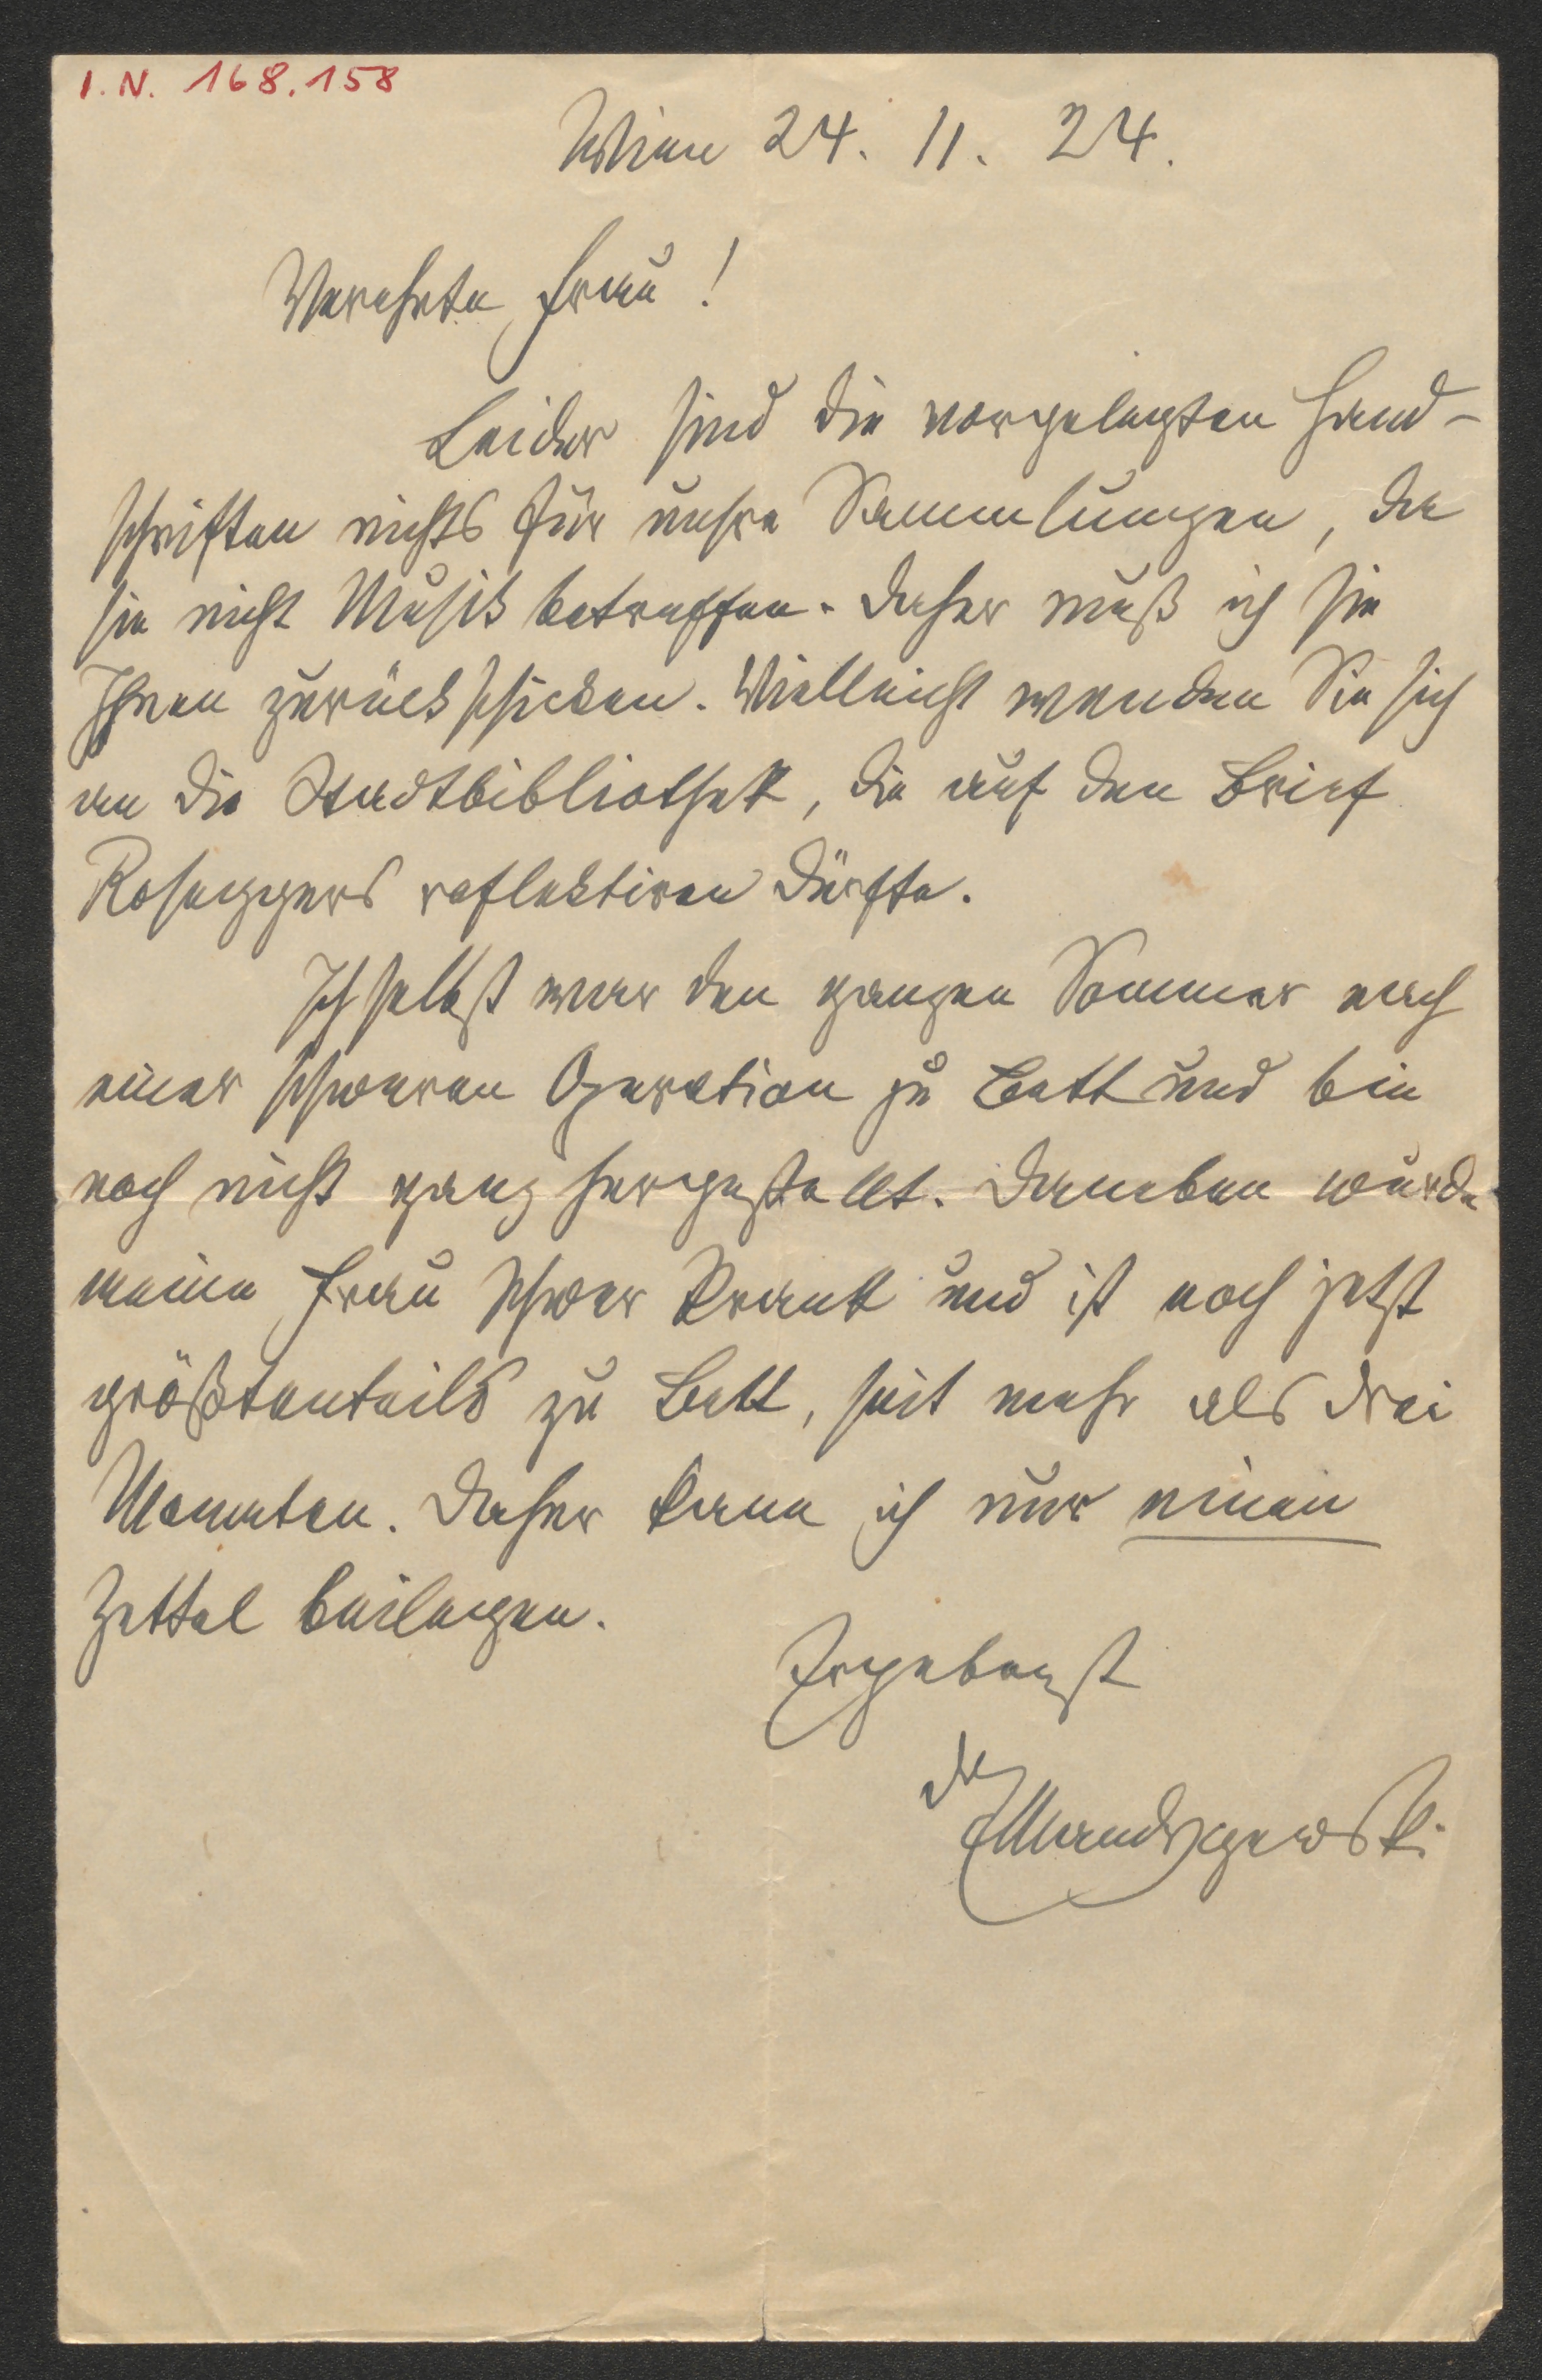 I.N. 168.158
Wien 24. 11. 24.
Verehrte Frau!
Leider sind die vorgelegten Hand-
schriften nichts für unsre Sammlungen, da
sie nicht Musik betreffen. Daher muß ich sie
Ihnen zurückschicken. Vielleicht wenden Sie sich
an die Stadtbibliothek, die auf den Brief
Roseggers reflektiren dürfte.
Ich selbst war den ganzen Sommer nach
einer schweren Operation zu Bett und bin
noch nicht ganz hergestellt. Daneben wurde
meine Frau schwer krank und ist noch jetzt
größtenteils zu Bett, seit mehr als drei
Monaten. Daher kann ich nur einen
Zettel beilegen.
Ergebenst
Dr EMandyczewski